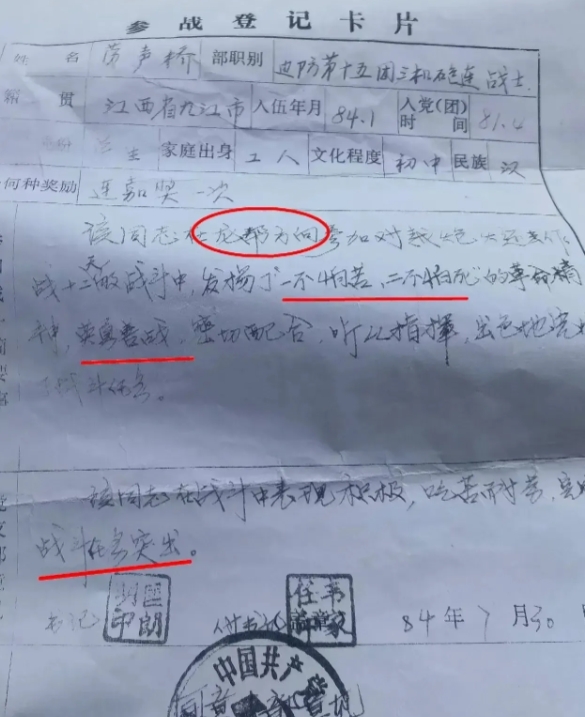 参战登记卡片
姓名 声桥 部职别 边防第十五团三机炮连战士
籍贯 江西省九江市 入伍年月 84.1 入党(团)时间 81.4
学生 家庭出身 工人 文化程度 初中 民族 汉
何种奖励 连嘉奖一次
该同志在龙邦方向参加对越
战十二天的战斗中,发扬了“一不怕苦,二不怕死”的革命精
神,英勇善战,密切配合,听从指挥,出色地完
了战斗任务。
该同志在战斗中表现积极,吃苦耐劳,完
战斗任务突出。
书记 付书记 84年7月30
中国共产党
同意